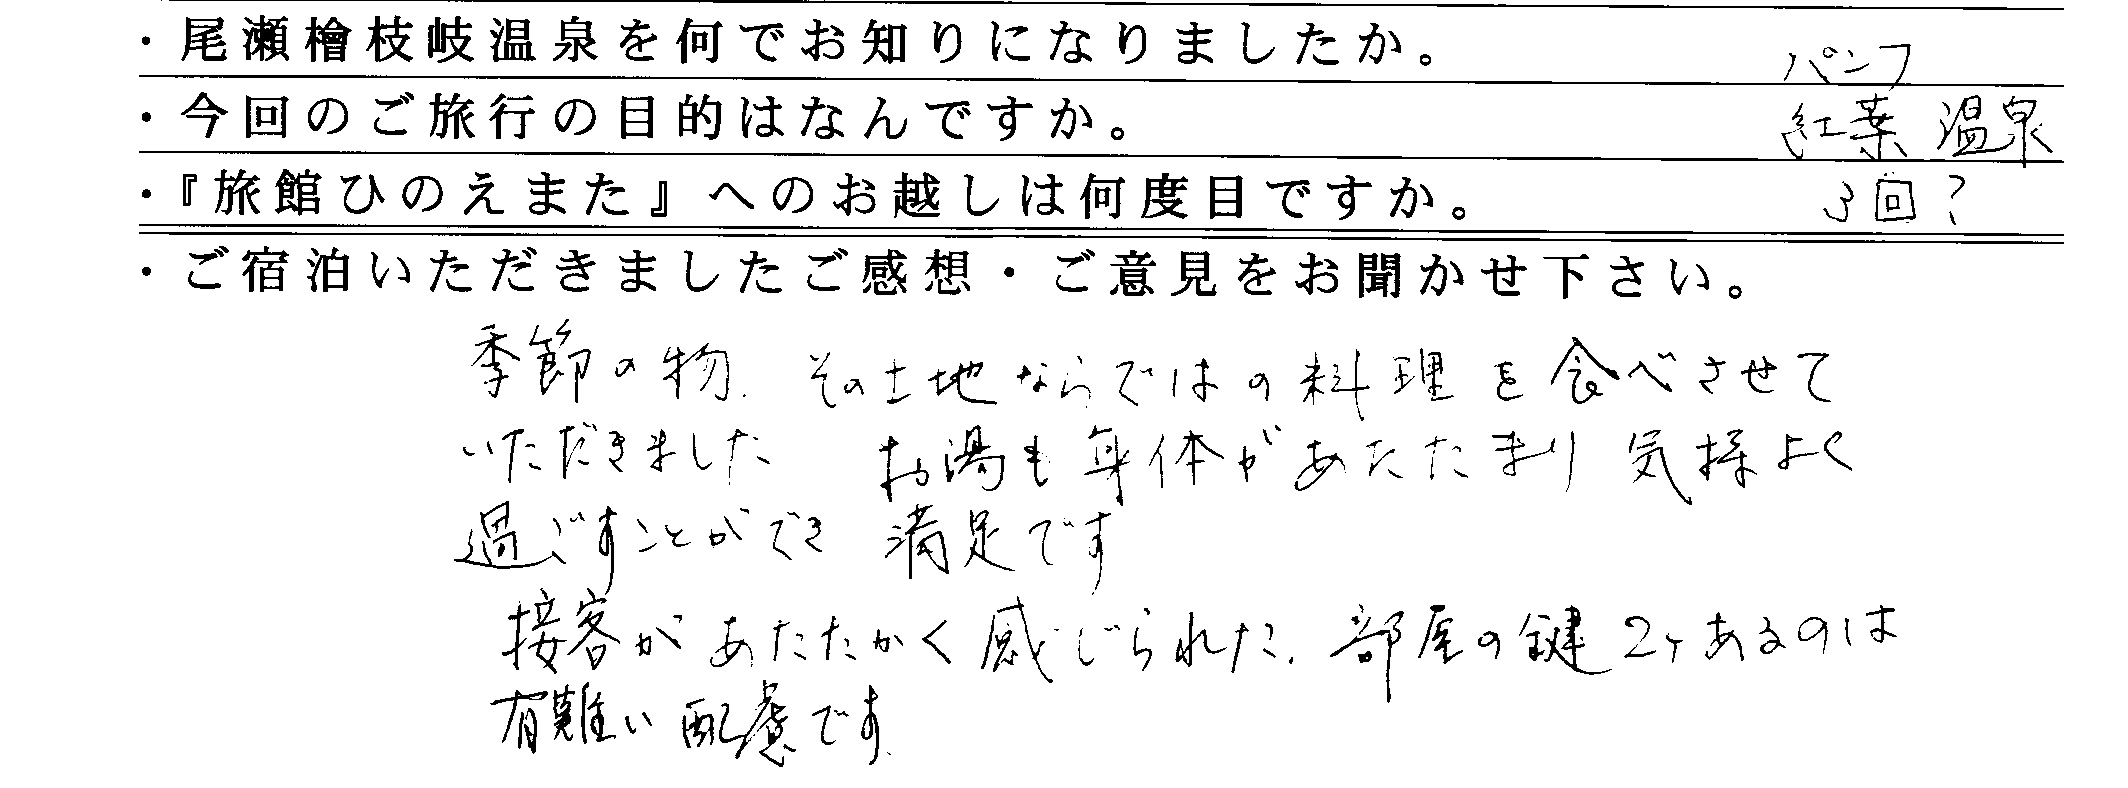 ・尾瀬檜枝岐温泉を何でお知りになりましたか。
パンフ
・今回のご旅行の目的はなんですか。
紅葉 温泉
・『旅館ひのえまた』へのお越しは何度目ですか。
3回?
・ご宿泊いただきましたご感想・ご意見をお聞かせ下さい。
季節の物、その土地ならではの料理を食べさせて
いただきました お湯も身体があたたまり 気持よく
過ごすことができ 満足です
接客があたたかく感じられた、部屋の鍵2ヶあるのは
有難い配慮です。